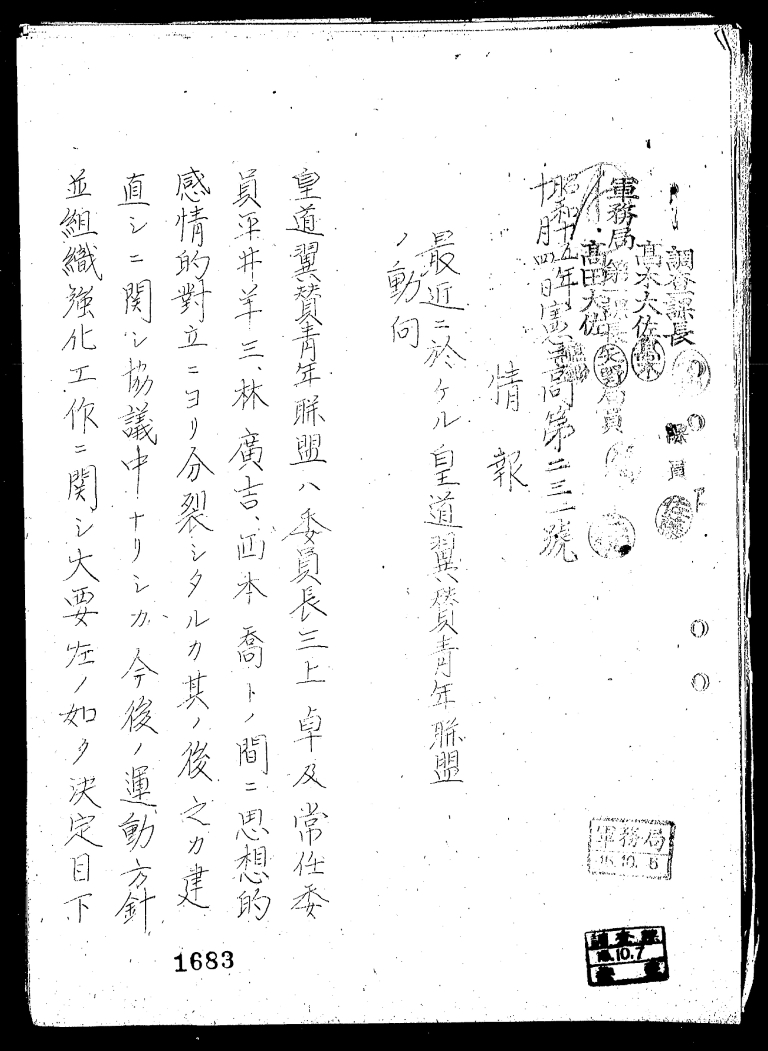 調査課長
高木大佐
課員
軍務局
高田大佐
局員
昭和十五年
十月四日憲高第二三一號
情報
最近ニ於ケル皇道翼賛青年聯盟
ノ動向
皇道翼賛青年聯盟ハ委員長三上卓及常任委
員平井羊三、林廣吉、西本喬トノ間ニ思想的
感情的對立ニヨリ分裂シタルカ其ノ後之カ建
直シニ関シ協議中ナリシカ今後ノ運動方針
並組織強化工作ニ関シ大要左ノ如ク決定目下
軍務局
15.10.5
調査課
15.10.7
1683